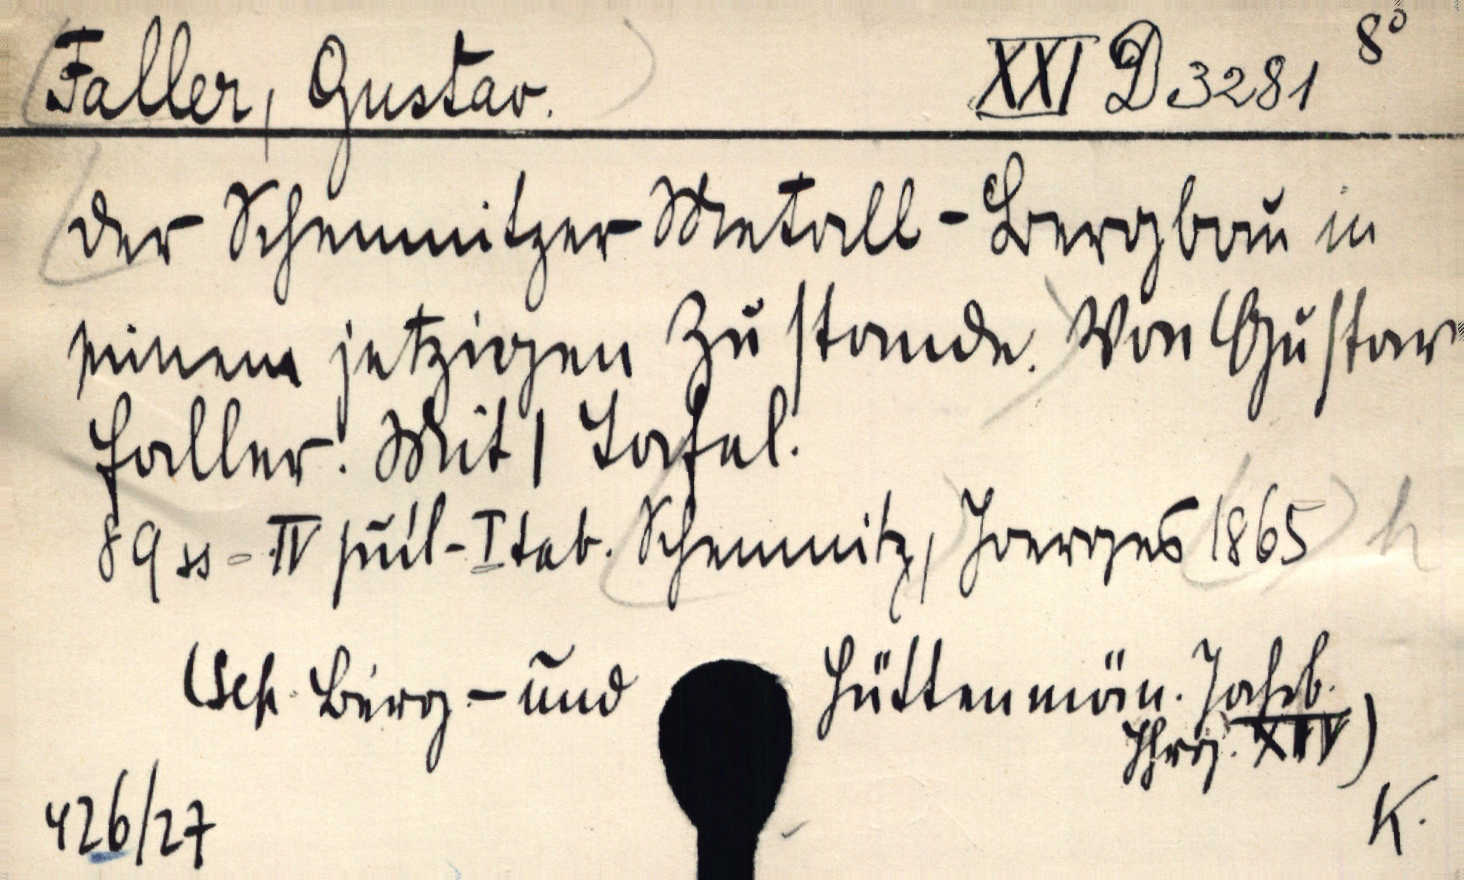 Faller, Gustav. XXI D 3281 8°
Der Schemnitzer Metall-Bergbau in
seinem jetzigen Zustande. Von Gustav
Faller. Mit 1 Tafel.
89 ss - IV füil - I tab. Schemnitz, Joerges 1865 h
(Sep. Berg- und Hüttenmän. Jahrb.
Jhrg. XIV)
426/27 K.